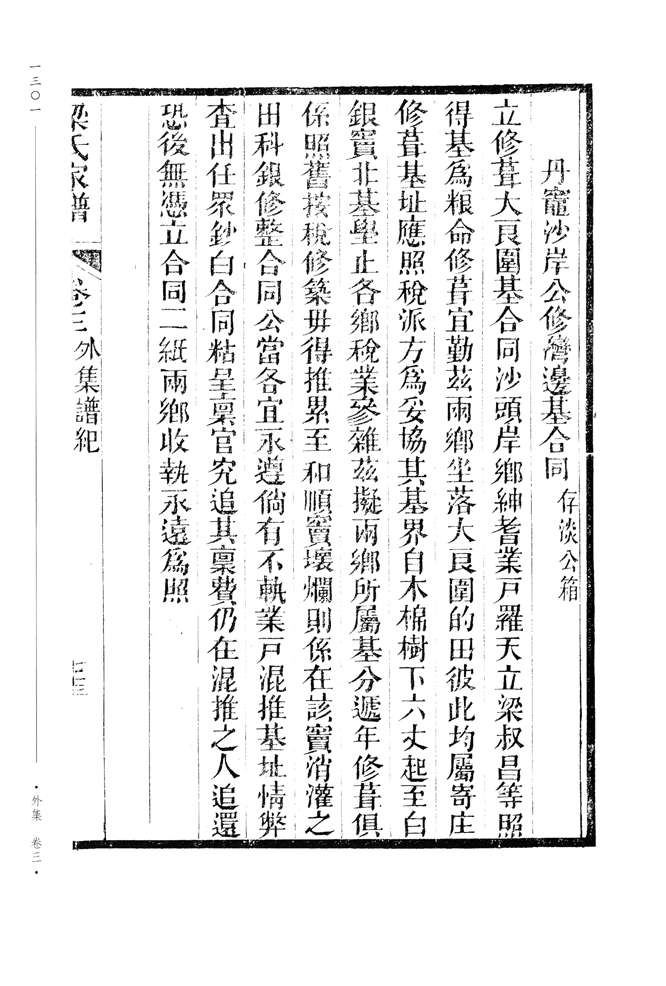 丹竈沙岸公修灣邊基合同 存淡公箱
立修葺大良圍基合同沙頭岸鄉紳耆業戸羅天立梁叔昌等照
得基爲粮命修葺宜勤茲兩鄉坐落大良圍的田彼此均屬寄庄
修葺基址應照稅派方爲妥協其基界自木棉樹下六丈起至白
銀竇北基壆止各鄉稅業參雜茲擬兩鄉所屬基分遞年修葺俱
係照舊按稅修築毋得推累至和順竇壞爛則係在該竇消灌之
田科銀修整合同公當各宜永遵倘有不執業戸混推基址情弊
查出任眾鈔白合同粘呈稟官究追其稟費仍在混推之人追還
恐後無憑立合同二紙兩鄉收執永遠爲照
梁氏家譜 卷三 外集譜紀
七三
一三〇一
·外集 卷三·